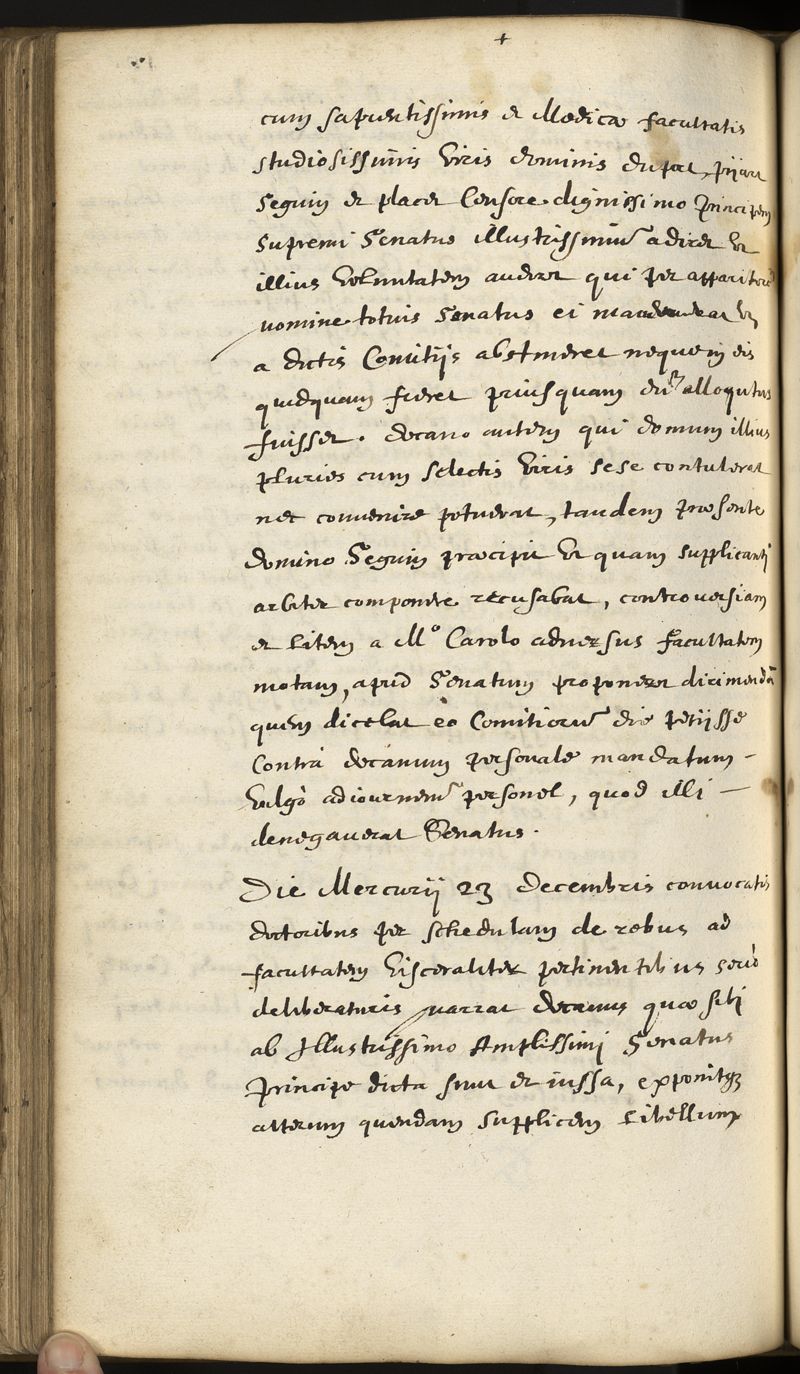 cum sapientissimis et Medicæ facultatis
studiosissimis Viris dominis dupret, pijart
Seguin et placet Censore dignissimo Principem
supremi Senatus illustrissimū adiret Vt
illius Voluntatem audiret qui per apparitorē
nomine totius Senatus ei mandaverat Vt
a dictis Comitijs abstineret neque in eis
quidquam fieret priusquam eū alloqutus
fuisset. decano autem qui domum illius
pluries cum selectis Viris sese contulerat
nec convenire potuerat, tandem præsente
domino Seguin præcipit Vt quam supplicanti
arbiter componere recusabat, controversiam
et litem a Mº Carolo adversus facultatem
motam, apud Senatum proponeret dirimendā
quem dicebat eo Comitiorū die petijsse
Contrà decanum personale mandatum –
Vulgò adiournemt personel, quod illi –
denegaverat Senatus.
Die Mercurij 23 decembris convocatis
doctoribus per schedulam de rebus ad
facultatem Visceraliter pertinentibus seriò
deliberaturis narrat decanus quæ sibi
ab Illustrissimo Amplissimj Senatus
Principe dicta sunt et iussa, exponitqz
alterum quendam supplicem libellum